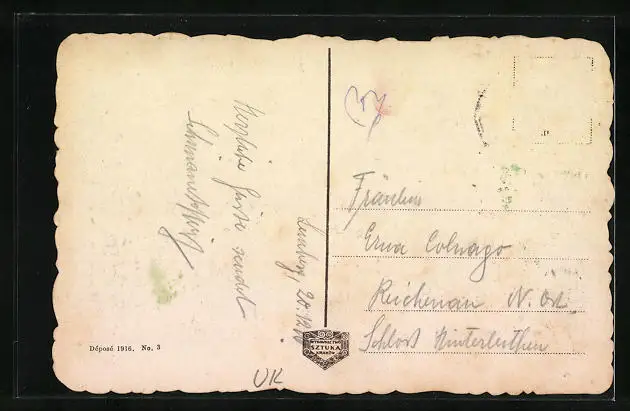 Herzliche Grüße sendet
Lemberg, 20.12.
Fräulein
Erna Colnago
Reichenau N. Öst.
Schloß Hinterleithen
Déposé 1916. No. 3
SZTUKA
KRAKÓW
UK